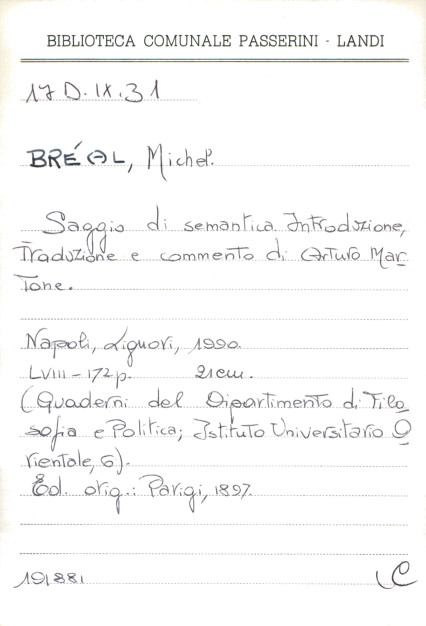 BIBLIOTECA COMUNALE PASSERINI - LANDI
17 D. IX. 31
BRÉAL, Michel.
Saggio di semantica. Introduzione,
Traduzione e commento di Arturo Mar
Tone.
Napoli, Liguori, 1990.
LVIII - 172 p. 21 cm.
(Quaderni del Dipartimento di Filo
sofia e Politica; Istituto Universitario O
rientale, 6).
Ed. orig.: Parigi, 1897.
191881